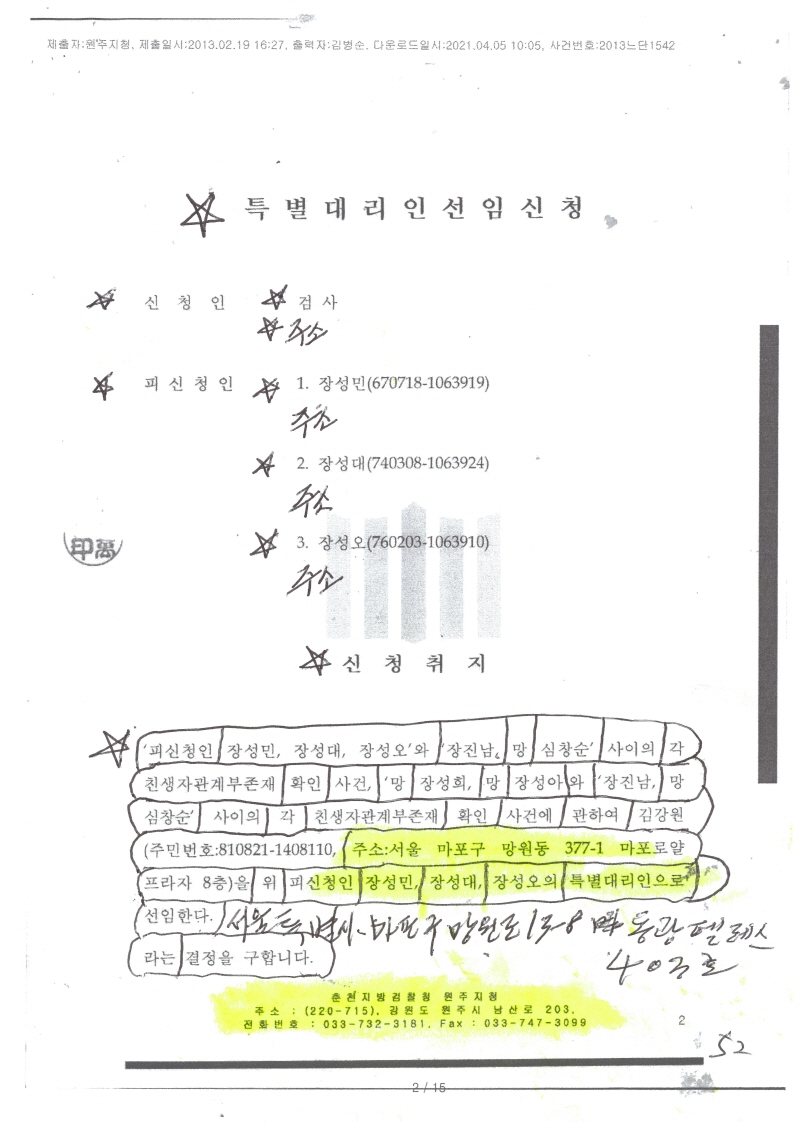 제출자:원주지청, 제출일시:2013.02.19 16:27, 출력자:김병순, 다운로드일시:2021.04.05 10:05, 사건번호:2013느단1542
특별대리인선임신청
신 청 인 검사
주소
피 신 청 인 1. 장성민(670718-1063919)
주소
2. 장성대(740308-1063924)
주소
印萬
3. 장성오(760203-1063910)
주소
신 청 취 지
'피신청인 장성민, 장성대, 장성오'와 '장진남, 망 심창순' 사이의 각
친생자관계부존재 확인 사건, '망 장성희, 망 장성아와 '장진남, 망
심창순' 사이의 각 친생자관계부존재 확인 사건에 관하여 김강원
(주민번호:810821-1408110, 주소:서울 마포구 망원동 377-1 마포로얄
프라자 8층)을 위 피신청인 장성민, 장성대, 장성오의 특별대리인으로
선임한다. 서울특별시 마포구 망원로 13-8 동광펠레스
403호
라는 결정을 구합니다.
춘천지방검찰청 원주지청
주 소 : (220-715), 강원도 원주시 남산로 203,
전화번호 : 033-732-3181, Fax : 033-747-3099
2
52
2 / 15